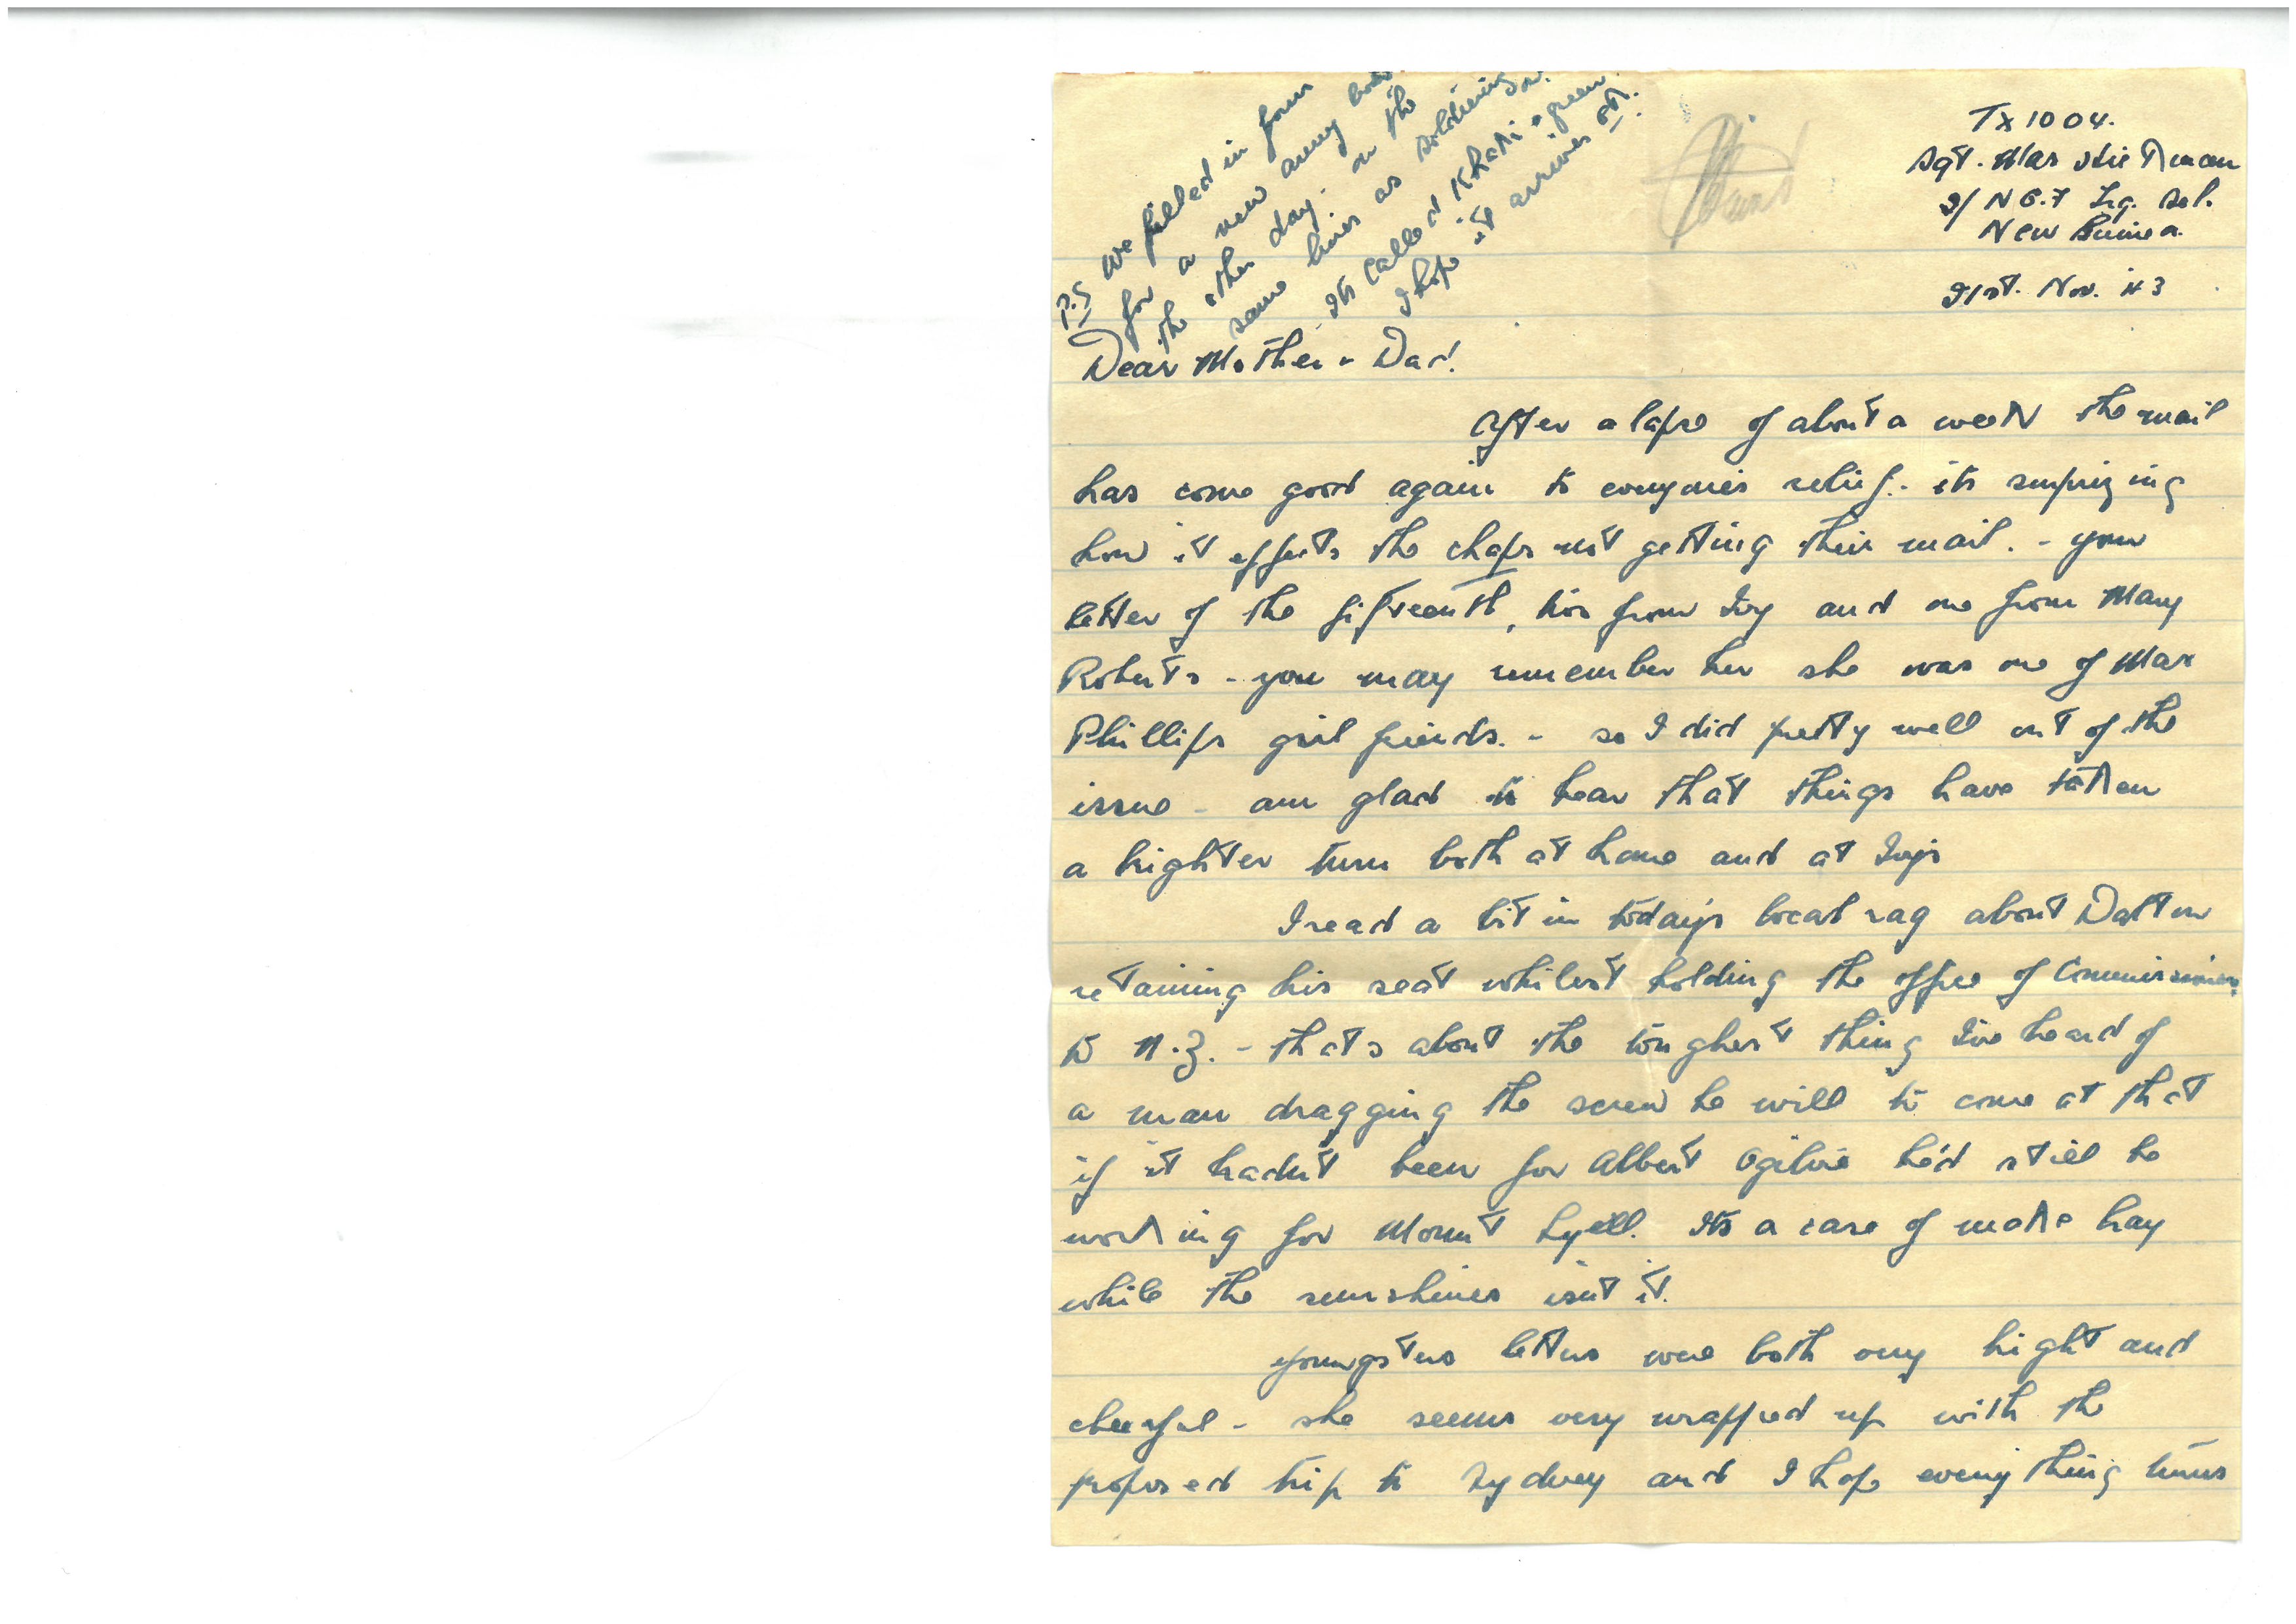 TX1004.
Sgt. Max
N.G.F. Trg. Sch.
New Guinea
21st. Nov. 43
P.S. We filled in form
for a new army book
the other day. on the
same lines as soldiering on.
Its called Khaki & green.
I hope it arrives ok.
Dear Mother & Dad.
After a lapse of about a week the mail
has come good again to everyones relief. - its surprizing
how it effects the chaps not getting their mail. - your
letter of the fifteenth, two from Ivy and one from Mary
Roberts - you may remember her she was one of Max
Phillips girl friends. - so I did pretty well out of the
issue - am glad to hear that things have taken
a brighter turn both at home and at Ivys
I read a bit in todays local rag about Dalton
retaining his seat whilest holding the office of Commissioner
to N.Z. - thats about the toughest thing Ive heard of
a man dragging the screw he will to come at that
if it hadnt been for Albert Ogilvie he'd still be
working for Mount Lyell. Its a case of make hay
while the sunshines isnt it.
youngsters letters were both very bright and
cheerful - she seems very wrapped up with the
proposed trip to Sydney and I hope everything turns